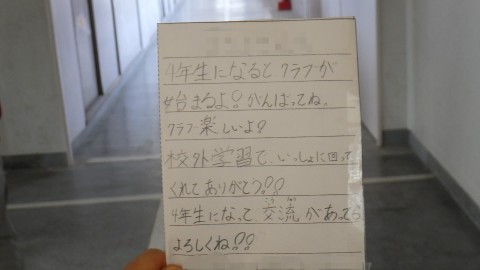 4年生になると、クラブが
始まるよ!がんばってね。
クラブ楽しいよ!
校外学習で、いっしょに回って
くれてありがとう!!
4年生になって、交流があったら
よろしくね!!